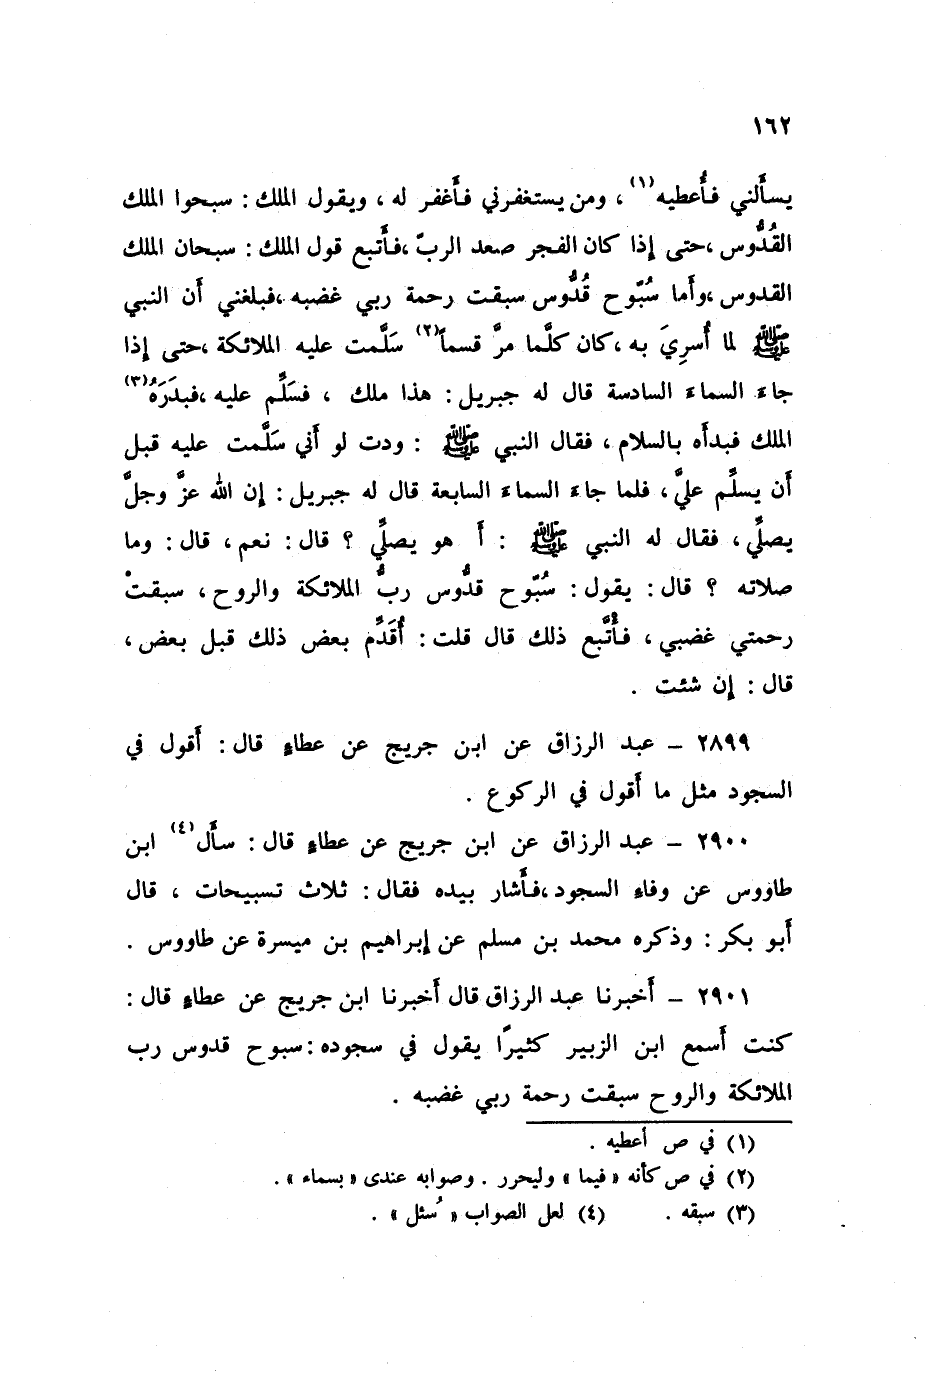 ١٦٢
يسأَلني فأُعطيه(١) ، ومن يستغفرني فأَغفر له ، ويقول الملك : سبحوا الملك
القُدُّوس ،حتى إذا كان الفجر صعد الربّ ،فأَتبع قول الملك : سبحان الملك
القدوس ،وأَما سُبّوح قُدُّوس سبقت رحمة ربي غضبه ،فبلغني أَن النبي
ﷺ لما أُسرِيَ به ،كان كلَّما مرَّ قسماً(٢) سَلَّمت عليه الملائكة ،حتى إذا
جاءَ السماءَ السادسة قال له جبريل : هذا ملك ، فسَلِّم عليه ،فبدَرَهُ(٣)
الملك فبدأَه بالسلام ، فقال النبي ﷺ : ودت لو أَني سَلَّمت عليه قبل
أَن يسلِّم عليَّ ، فلما جاءَ السماءَ السابعة قال له جبريل : إن الله عزَّ وجلَّ
يصلِّي ، فقال له النبي ﷺ : أَ هو يصلِّي ؟ قال : نعم ، قال : وما
صلاته ؟ قال : يقول : سُبّوح قدُّوس ربُّ الملائكة والروح ، سبقتْ
رحمتي غضبي ، فأَتَّبع ذلك قال قلت : أُقَدِّم بعض ذلك قبل بعض ،
قال : إن شئت .
٢٨٩٩ – عبد الرزاق عن ابن جريج عن عطاءٍ قال : أَقول في
السجود مثل ما أَقول في الركوع .
٢٩٠٠ – عبد الرزاق عن ابن جريج عن عطاءٍ قال : سأَل(٤) ابن
طاووس عن وفاء السجود ،فأَشار بيده فقال : ثلاث تسبيحات ، قال
أَبو بكر : وذكره محمد بن مسلم عن إبراهيم بن ميسرة عن طاووس .
٢٩٠١ – أَخبرنا عبد الرزاق قال أَخبرنا ابن جريج عن عطاءٍ قال :
كنت أَسمع ابن الزبير كثيرًا يقول في سجوده :سبوح قدوس رب
الملائكة والروح سبقت رحمة ربي غضبه .
(١) في ص أعطيه .
(٢) في ص كأنه « فيما » وليحرر . وصوابه عندى « بسماء » .
(٣) سبقه . (٤) لعل الصواب « سُئل » .